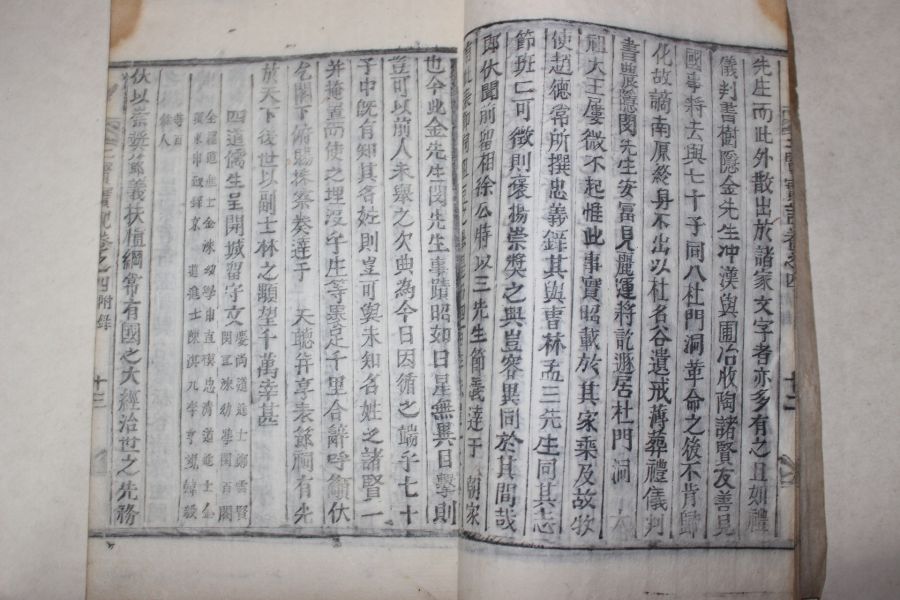 先生而此外散出於諸家文字者亦多有之且如禮
儀判書樹隱金先生冲漢與圃冶牧陶諸賢友善見
國事將去與七十子同入杜門洞革命之後不肯歸
化故謫南原終身不出以杜名谷遺戒薄葬禮儀判
書農隱閔先生安富見麗運將訖遯居杜門洞 太
祖大王屢徵不起惟此事實昭載於其家乘及故牧
使趙德常所撰忠義錄其與曺林孟三先生同其志
節班班可徵則褒揚崇奬之典豈容異同於其間哉
郎伏聞前留相徐公特以三先生節義達于 朝家
也今此金先生閔先生事蹟昭如日星無異目擊則
豈可以前人未舉之欠典為今日因循之端乎七十
子中旣有知其名姓則豈可與未知名姓之諸賢一
并掩置而使之埋沒乎生等裹足千里合辭呼籲伏
乞閤下俯賜採察發達于 天聽并享表節祠有光
於天下後世以副士林之顒望千萬幸甚
四道儒生呈開城留守文
慶尚道進士鄭雲賢
幼學閔百
全羅道進士金
幼學申直模忠淸道進士金
京 道進士陳洪九李
等百
餘人
伏以崇奬節義扶植綱常有國之大經治世之先務
三賢實記卷之四 附錄 十三